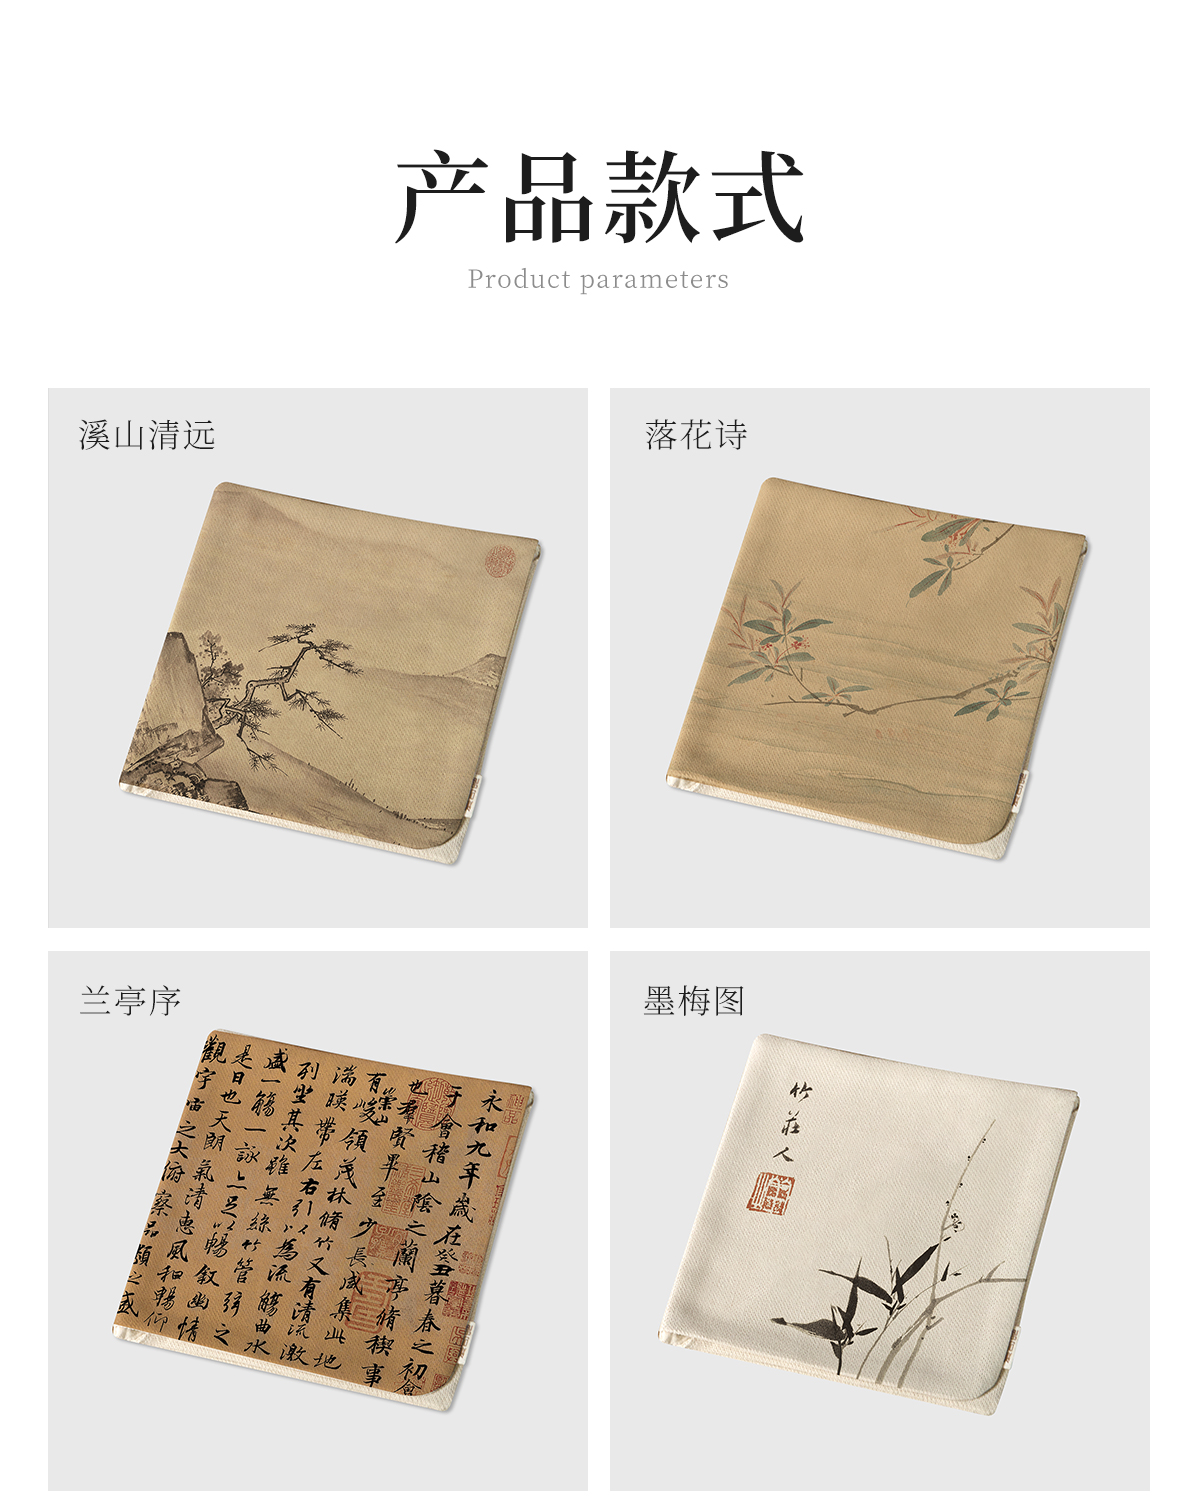 产品款式
Product parameters
溪山清远
落花诗
兰亭序
永和九年歲在癸丑暮春之初會
于會稽山陰之蘭亭脩稧事
也羣賢畢至少長咸集此地
有崇山峻領茂林脩竹又有清流激
湍暎帶左右引以為流觴曲水
列坐其次雖無絲竹管弦之
盛一觴一詠亦足以暢叙幽情
是日也天朗氣清惠風和暢仰
觀宇宙之大俯察品類之盛
墨梅图
竹莊人